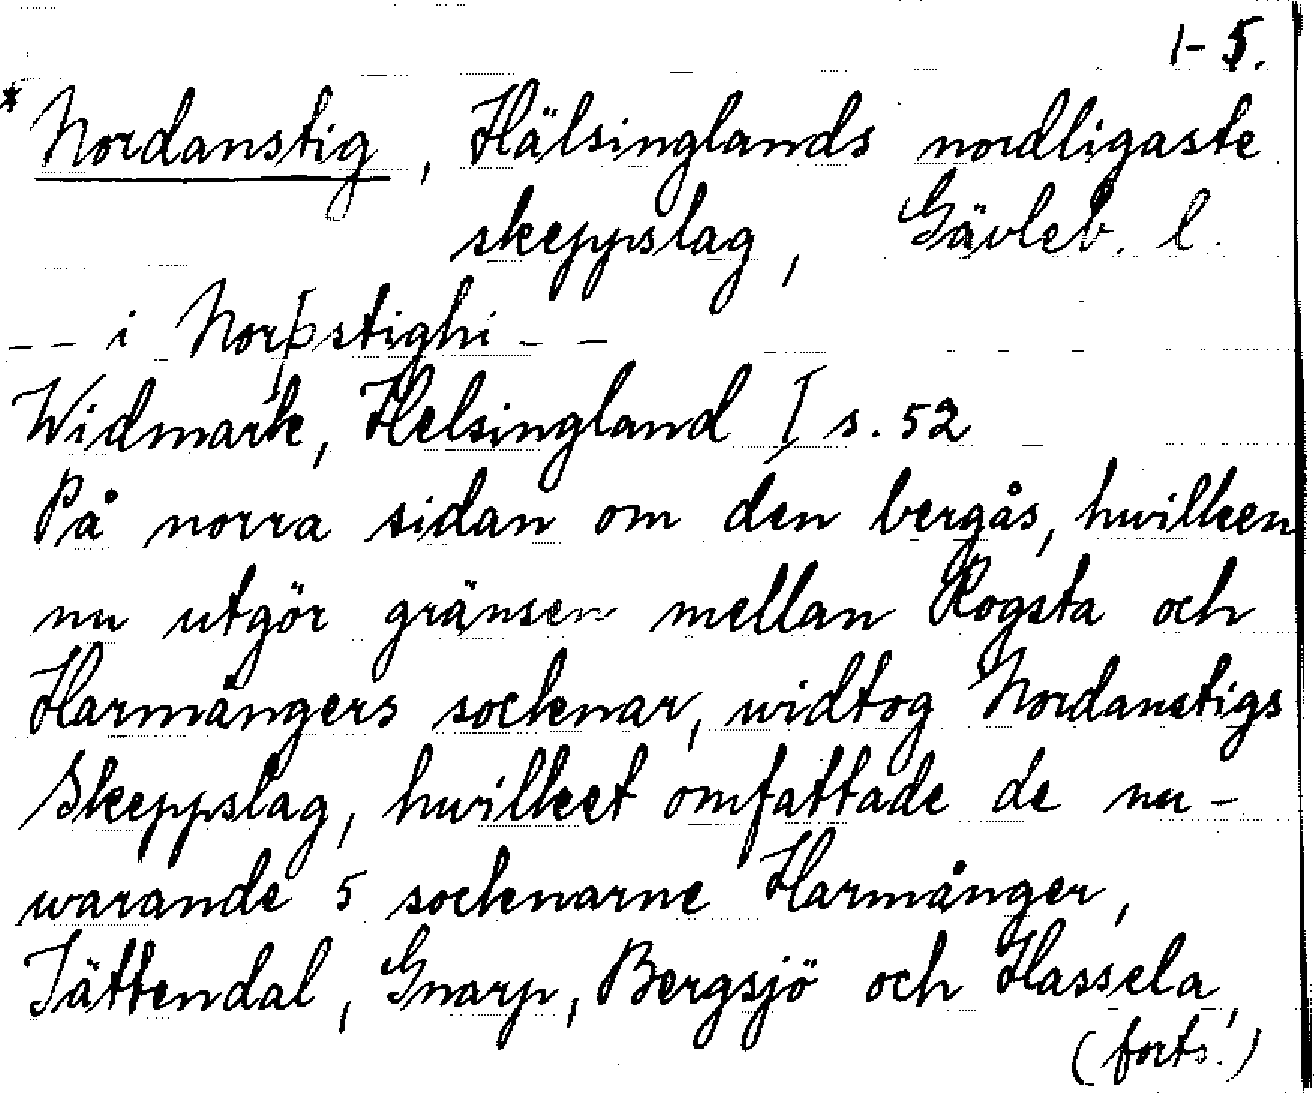 1-5.
* Nordanstig, Hälsinglands nordligaste
skeppslag, Gävleb. l.
-- i Norþstighi --
Widmark, Helsingland I s. 52
På norra sidan om den bergås, hwilken
nu utgör gränsen mellan Rogsta och
Harmångers socknar, widtog Nordanstigs
Skeppslag, hwilket omfattade de nu-
warande 5 socknarne Harmånger,
Jättendal, Gnarp, Bergsjö och Hassela,
(forts.)